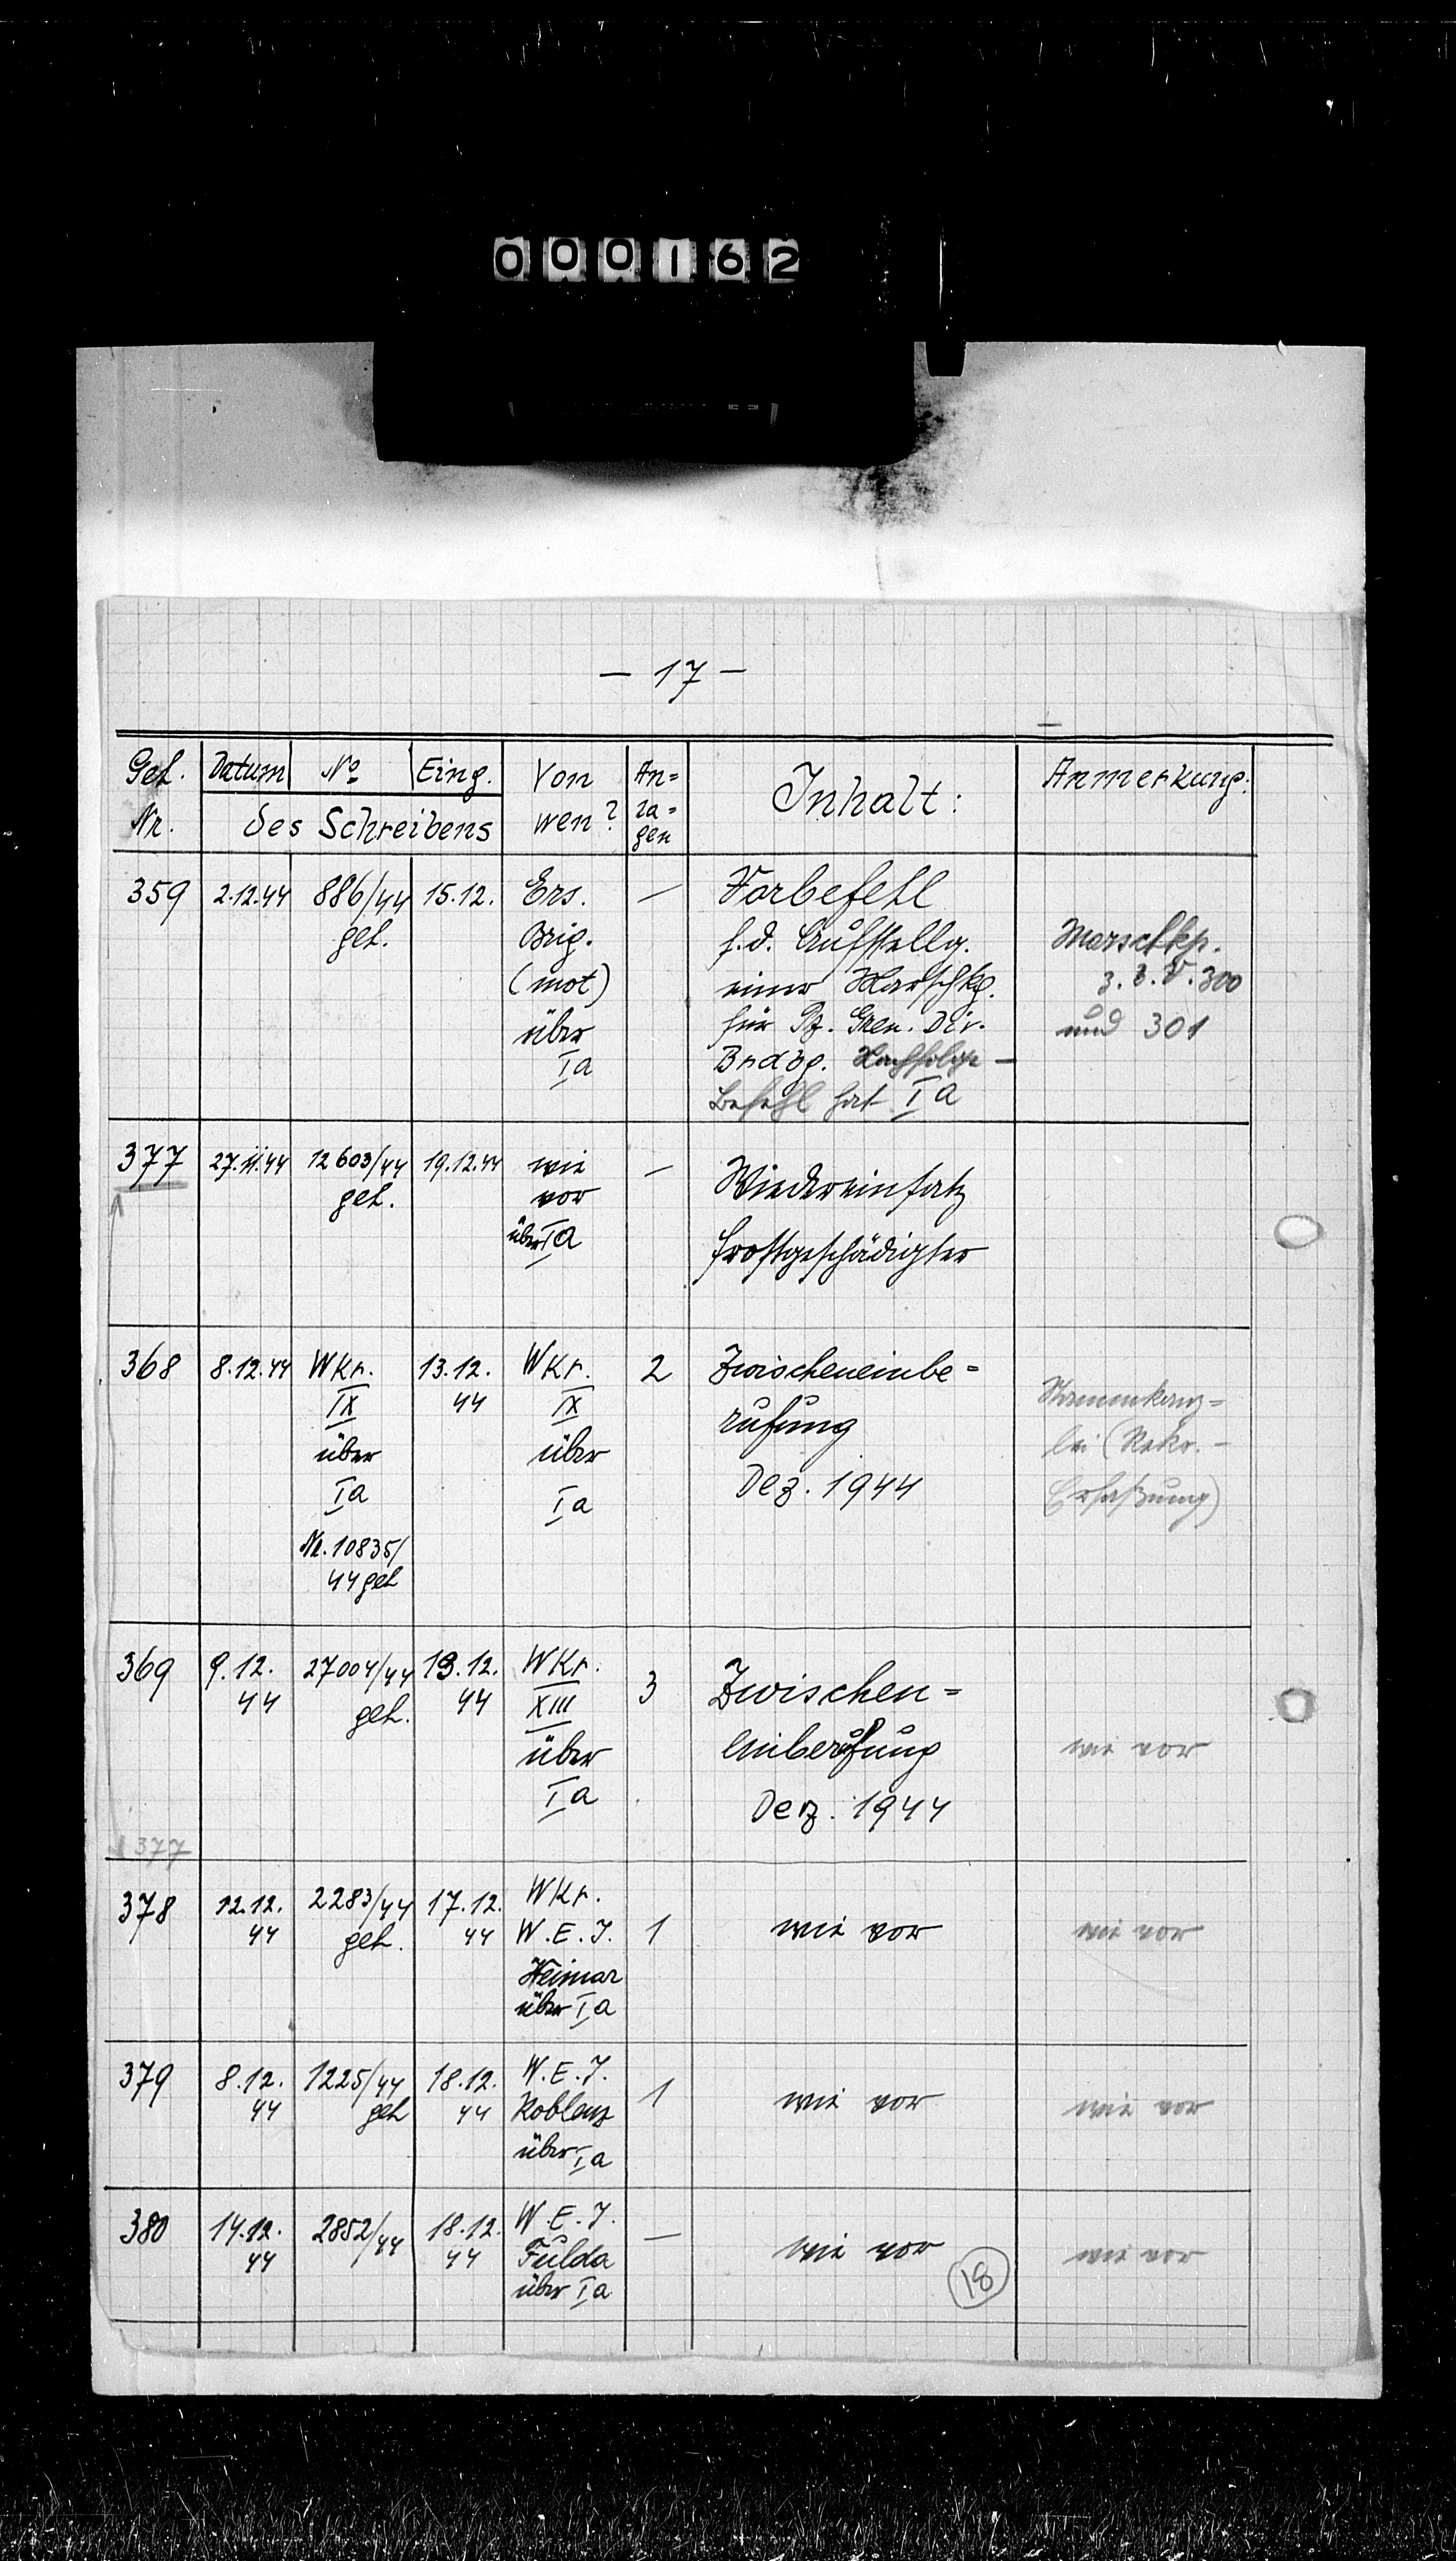 000162
— 17 —
Geh. Nr. | Datum | No | Eing. | Von wen? | An=la=gen | Inhalt: | Anmerkung:
des Schreibens
359 | 2.12.44 | 886/44 | 15.12. | Ers. | — | Vorbefehl
geh. | Brig. | f.d. Aufstellg. | Marschkp.
(mot) | einer Marschkp. | z.b.V. 300
über | für Pz. Gren. Div. | und 301
Ia | Brdbg. Nachfolge-
Befehl hat Ia
377 | 27.11.44 | 12603/44 | 19.12.44 | wie | — | Wiedereinsatz
geh. | vor
über Ia | Frostgeschädigter
368 | 8.12.44 | WKr. | 13.12. | WKr. | 2 | Zwischeneinbe=
IX | 44 | IX | rufung | Stammkanz=
über | über | lei (Rekr.-
Ia | Ia | Dez. 1944 | Erfaßung)
Nr. 10835/
44 geh
369 | 9.12. | 27004/44 | 13.12. | WKr. | 3 | Zwischen=
44 | geh. | 44 | XIII
über | einberufung | wie vor
Ia | Dez. 1944
377
378 | 12.12. | 2283/44 | 17.12. | WKr.
44 | geh. | 44 | W.E.J. | 1 | wie vor | wie vor
Weimar
über Ia
379 | 8.12. | 1225/44 | 18.12. | W.E.J. | 1
44 | geh | 44 | Koblenz | wie vor | wie vor
über Ia
380 | 14.12. | 2852/44 | 18.12. | W.E.J. | —
44 | 44 | Fulda | wie vor | wie vor
über Ia
18